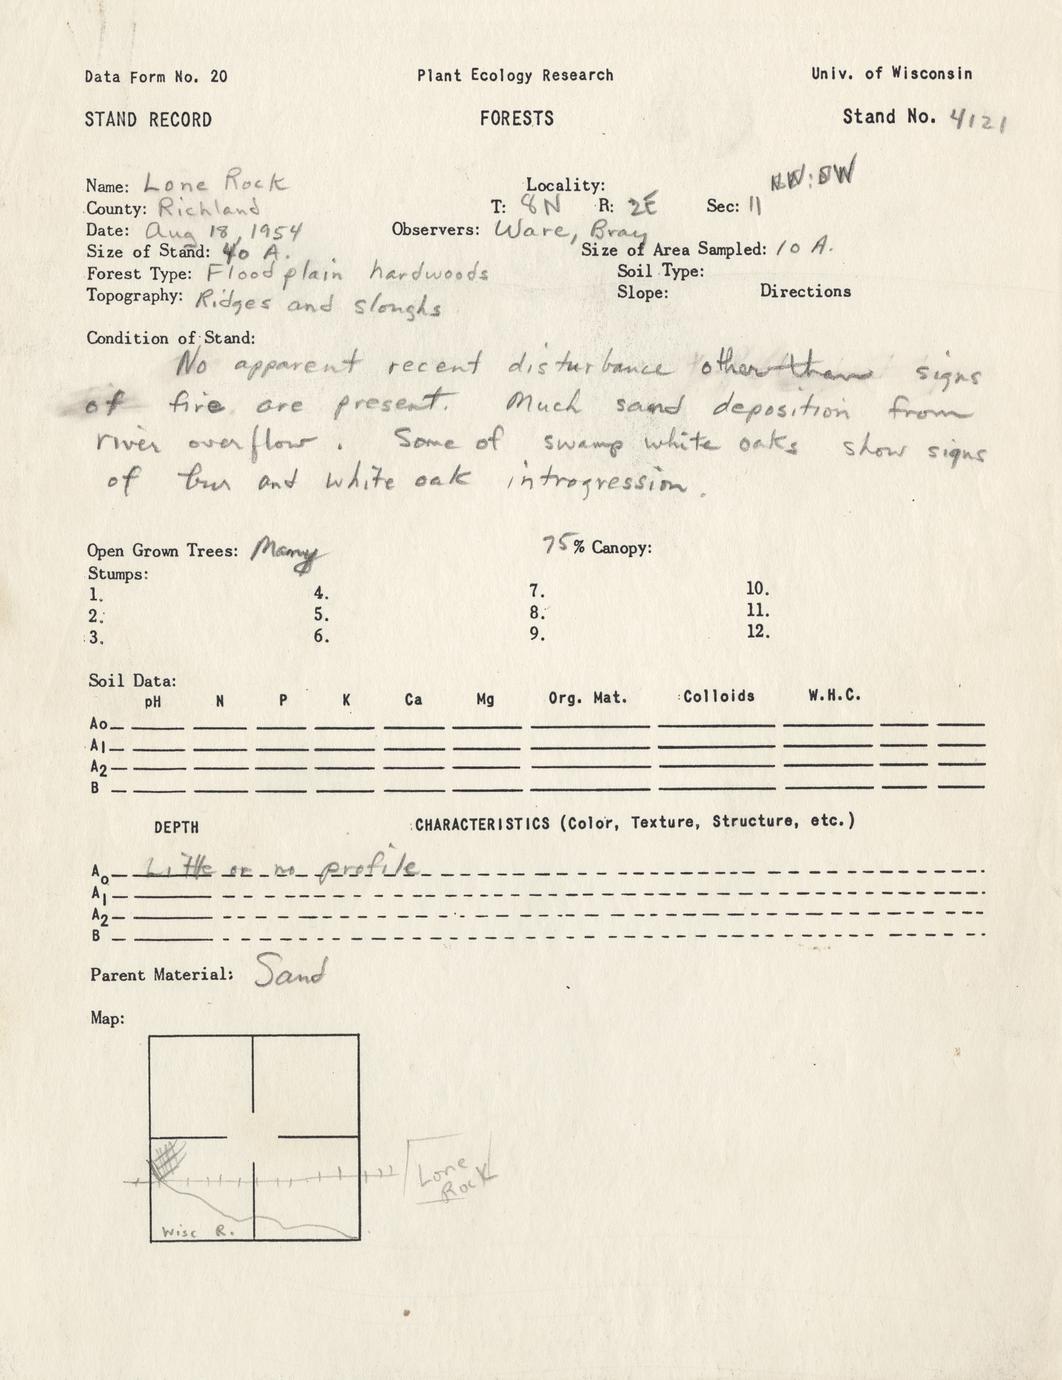 Data Form No. 20 Plant Ecology Research Univ. of Wisconsin
STAND RECORD FORESTS Stand No. 4121
NW: SW
Name: Lone Rock Locality:
County: Richland T: 8N R: 2E Sec: 11
Date: Aug 18, 1954 Observers: Ware, Bray
Size of Stand: 40 A. Size of Area Sampled: 10 A.
Forest Type: Flood plain hardwoods Soil Type:
Topography: Ridges and sloughs Slope: Directions
Condition of Stand:
No apparent recent disturbance other than signs
of fire are present. Much sand deposition from
river overflow. Some of swamp white oaks show signs
of bur and white oak introgression.
Open Grown Trees: Many 75% Canopy:
Stumps:
1. 4. 7. 10.
2. 5. 8. 11.
3. 6. 9. 12.
Soil Data:
pH N P K Ca Mg Org. Mat. Colloids W.H.C.
Ao
A1
A2
B
DEPTH CHARACTERISTICS (Color, Texture, Structure, etc.)
Ao Little or no profile
A1
A2
B
Parent Material: Sand
Map:
Lone
Rock
Wisc R.